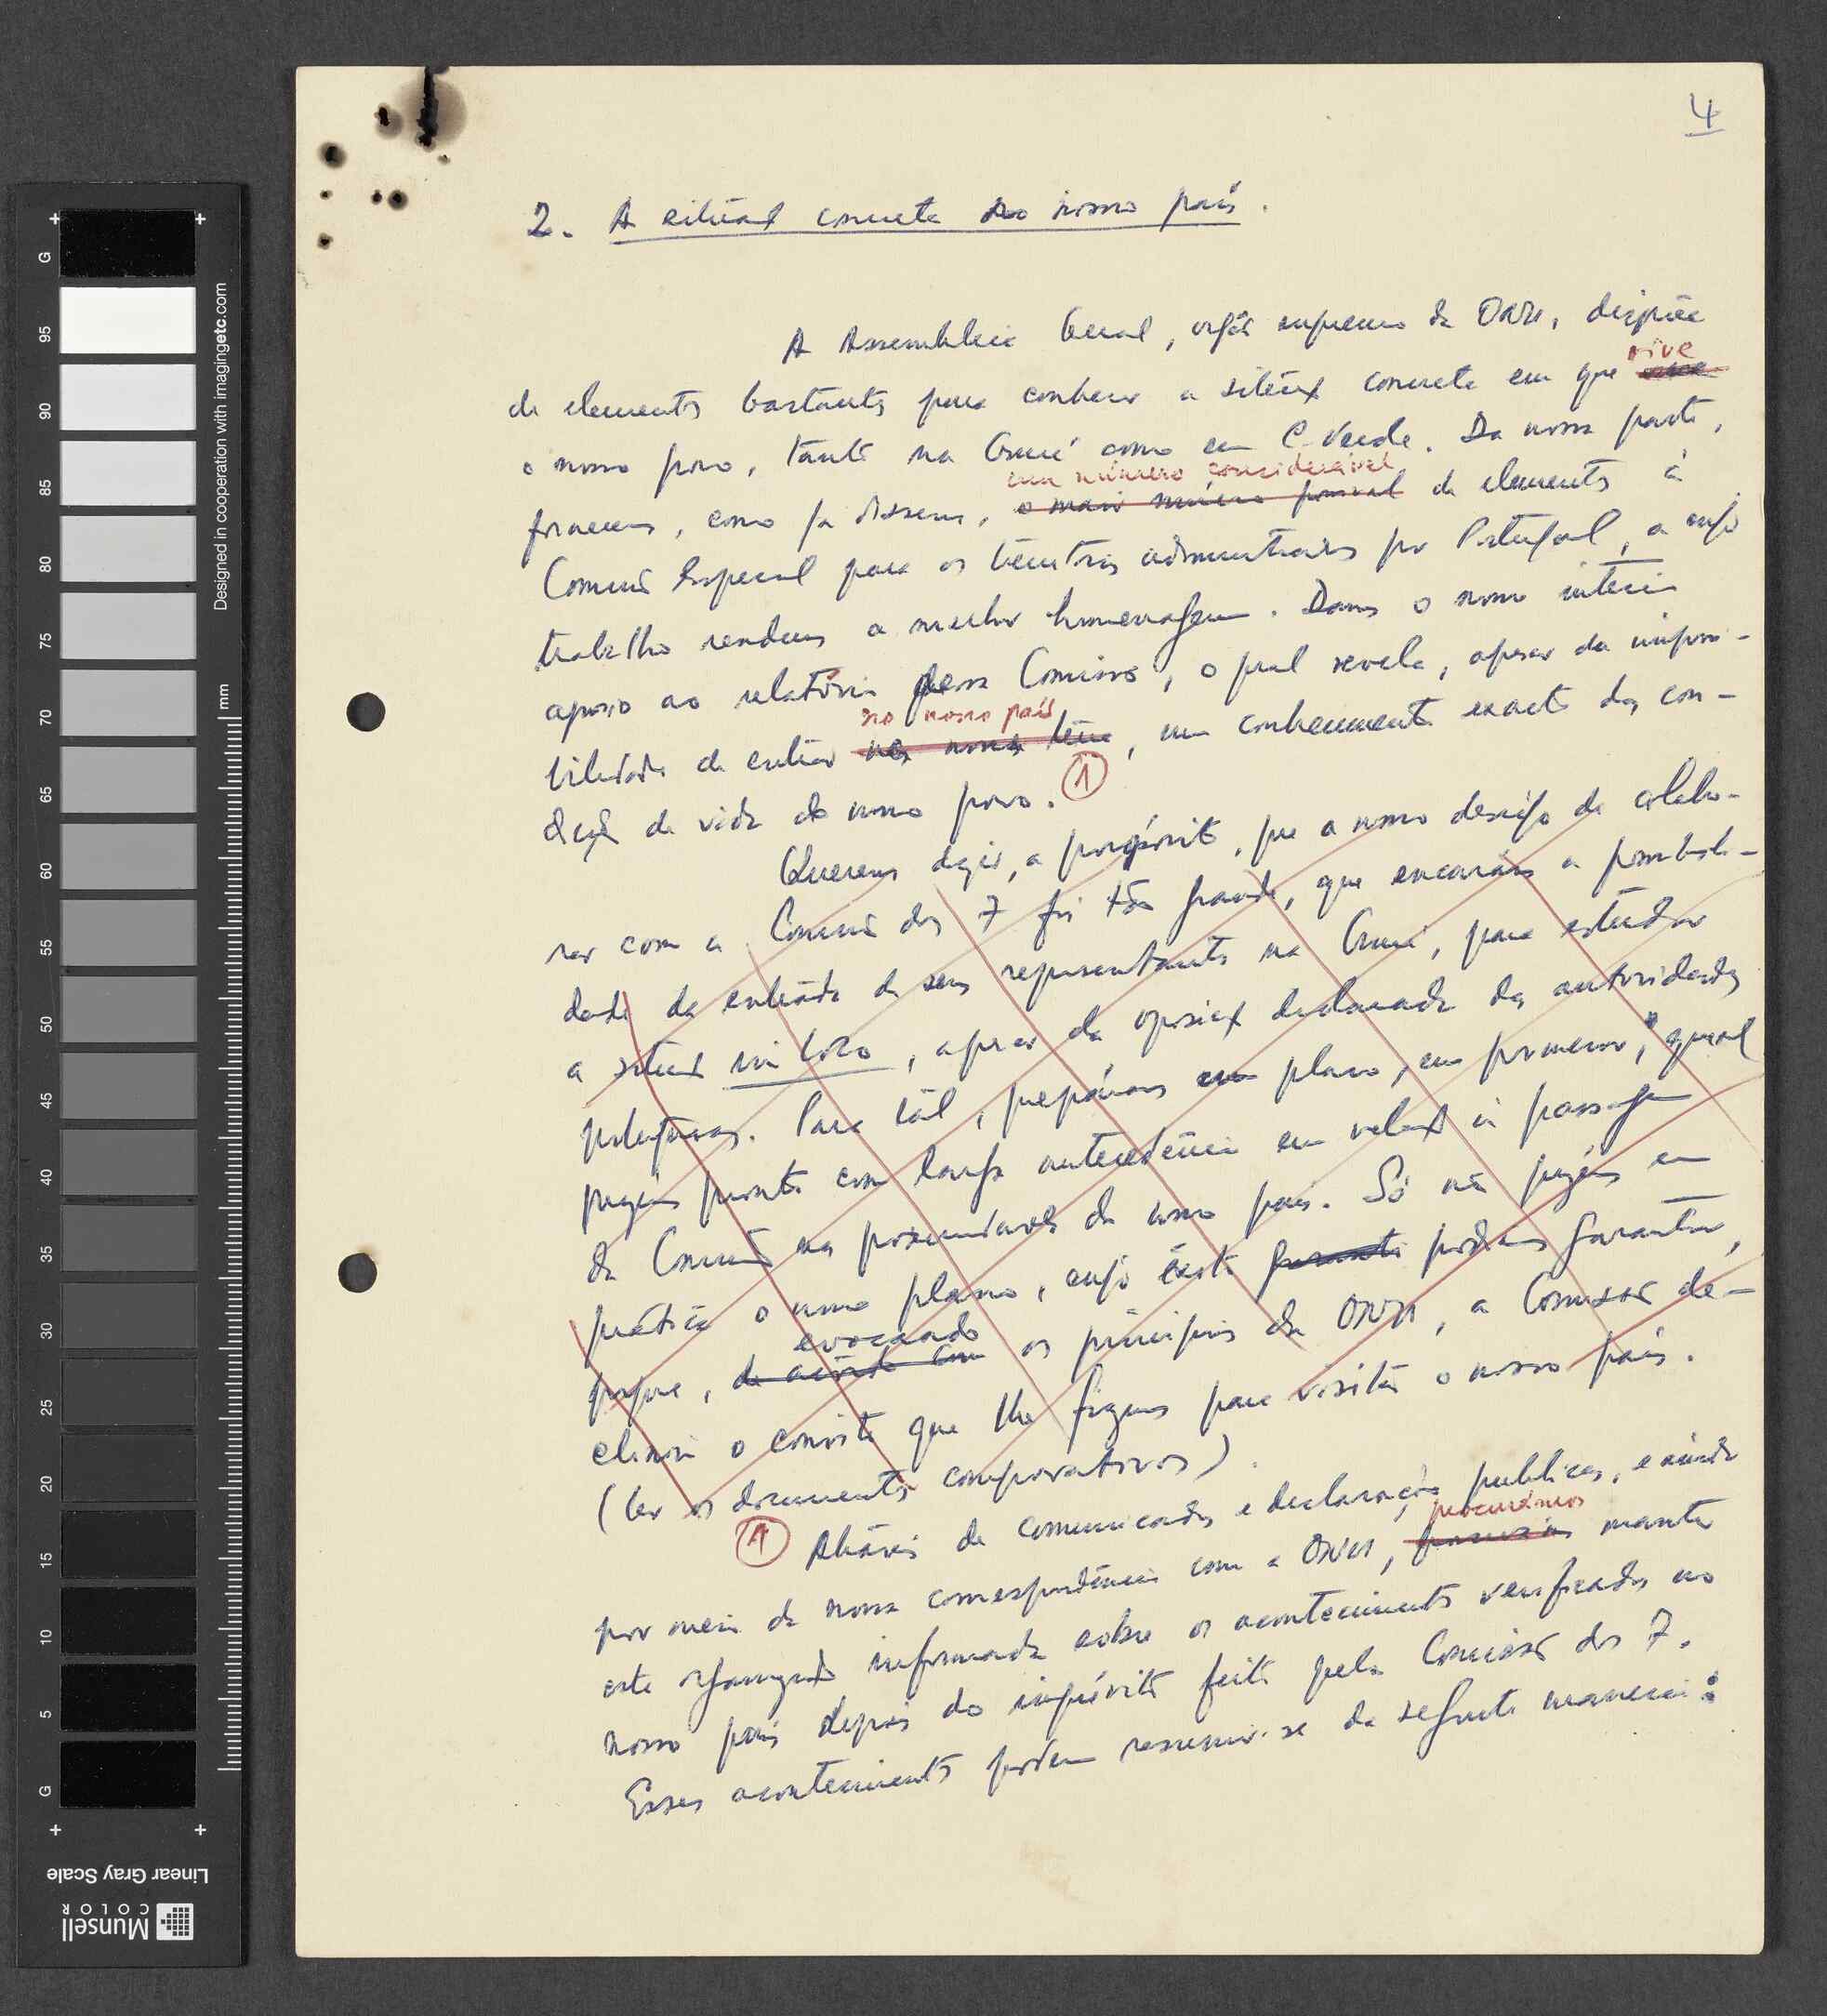 4
2. A situação concreta do nosso país.
A Assembleia Geral, orgão supremo da ONU, dispõe
vive
de elementos bastantes para conhecer a situação concreta em que
o nosso povo, tanto na Guiné como em C. Verde. Da nossa parte,
um número considerável
fornecemos, como já dissemos, o maior número possível de elementos à
Comissão Especial para os territórios administrados por Portugal, a cujo
trabalho rendemos a melhor homenagem. Damos o nosso inteiro
apoio ao relatório dessa Comissão, o qual revela, apesar da impossi-
no nosso país
bilidade de entrar na nossa terra, um conhecimento exacto das con-
dições de vida do nosso povo. 1
Queremos dizer, a propósito, que o nosso desejo de colabo-
rar com a Comissão dos 7 foi tão grande, que encarámos a possibili-
dade da entrada de seus representantes na Guiné, para estudar
a situação in loco, apesar da oposição declarada das autoridades
portuguesas. Para tal, preparámos um plano, em pormenor, o qual
pusemos pronto com larga antecedência em relação à passagem
da Comissão nas proximidades do nosso país. Só não pusémos em
prática o nosso plano, cujo êxito podiamos garantir,
evocando
porque, de acôrdo com os princípios da ONU, a Comissão de-
clinou o convite que lhe fizemos para visitar o nosso país.
(Ler os documentos comprovativos).
1 Através de comunicados e declarações publicas, e ainda
procurámos
por meio da nossa correspondência com a ONU, manter
esta organização informada sobre os acontecimentos verificados no
nosso país depois do inquérito feito pela Comissão dos 7.
Esses acontecimentos podem resumir-se da seguinte maneira:
G
95
90
85
80
75
70
65
60
55
50
45
40
35
30
25
20
15
10
5
G
mm
Designed in cooperation with imagingetc.com
Linear Gray Scale
Munsell
COLOR